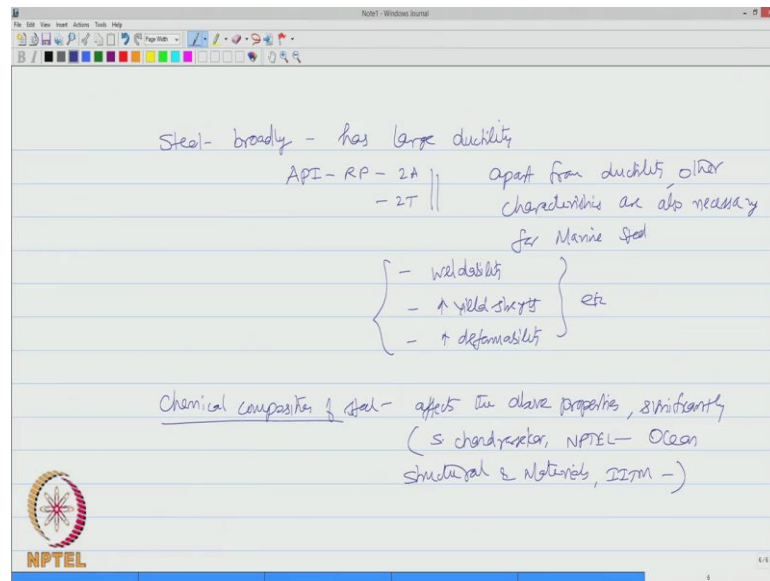 Note1 - Windows Journal
File Edit View Insert Actions Tools Help
Page Width
B I
Steel - broadly - has large ductility
API - RP - 2A
- 2T
apart from ductility, other
characteristics are also necessary
for Marine Steel
- weldability
- ↑ yield strength
- ↑ deformability
etc
Chemical composition of steel - affects the above properties, significantly
(S. Chandrasekar, NPTEL - Ocean
structural & Materials, IITM -)
NPTEL
6/6
6